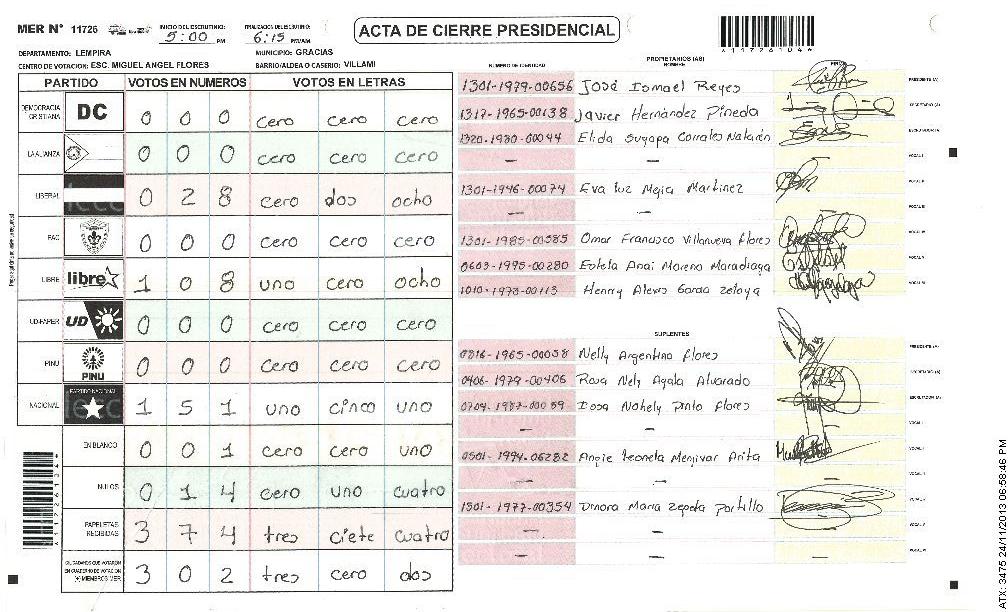 MER N° 11726
INICIO DEL ESCRUTINIO: 5:00 PM
FINALIZACION DEL ESCRUTINIO: 6:15 PM/AM
ACTA DE CIERRE PRESIDENCIAL
DEPARTAMENTO: LEMPIRA
MUNICIPIO: GRACIAS
CENTRO DE VOTACION: ESC. MIGUEL ANGEL FLORES
BARRIO/ALDEA O CASERIO: VILLAMI
PARTIDO VOTOS EN NUMEROS VOTOS EN LETRAS
DEMOCRACIA CRISTIANA DC 0 0 0 cero cero cero
LA ALIANZA 0 0 0 cero cero cero
LIBERAL 0 2 8 cero dos ocho
PAC 0 0 0 cero cero cero
LIBRE libre 1 0 8 uno cero ocho
UD-FAPER UD 0 0 0 cero cero cero
PINU PINU 0 0 0 cero cero cero
NACIONAL PARTIDO NACIONAL 1 5 1 uno cinco uno
EN BLANCO 0 0 1 cero cero uno
NULOS 0 1 4 cero uno cuatro
PAPELETAS RECIBIDAS 3 7 4 tres ciete cuatro
CIUDADANOS QUE VOTARON EN CUADERNO DE VOTACION (+) MIEMBROS MER 3 0 2 tres cero dos
NUMERO DE IDENTIDAD PROPIETARIOS (AS) NOMBRE FIRMA
1301-1979-00656 José Ismael Reyes PRESIDENTE (A)
1317-1965-00138 Javier Hernández Pineda SECRETARIO (A)
1320-1980-00044 Elida Suyapa Corrales Natarén ESCRUTADOR A
— — — VOCAL I
1301-1946-00074 Eva luz Mejia Martinez VOCAL II
— — VOCAL III
1301-1985-00585 Omar Francisco Villanueva flores VOCAL IV
0603-1995-00280 Estela Anai Moreno Maradiaga VOCAL V
1010-1978-00113 Henry Alexis Garcia Zelaya VOCAL VI
SUPLENTES
0816-1965-00058 Nelly Argentina flores PRESIDENTE (A)
0406-1979-00406 Rosa Nely Ayala Alvarado SECRETARIO (A)
0704-1987-00059 Issa Nohely Pinto flores ESCRUTADOR (A)
— — — VOCAL I
0501-1994-06282 Angie leonela Menjivar Arita VOCAL II
— — — VOCAL III
1301-1977-00354 Dinora Maria Zepeda Portillo VOCAL IV
— — — VOCAL V
— — — VOCAL VI
ATX: 3475 24/11/2013 06:58:46 PM